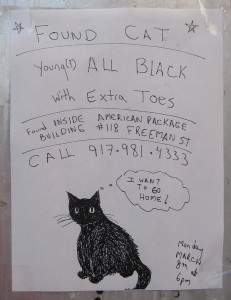 FOUND CAT
Young(!) ALL BLACK
with Extra Toes
Found INSIDE AMERICAN PACKAGE
BUILDING #118 FREEMAN ST
CALL 917.981.4333
I WANT
TO GO
HOME!
Monday
MARCH
8th at
6pm